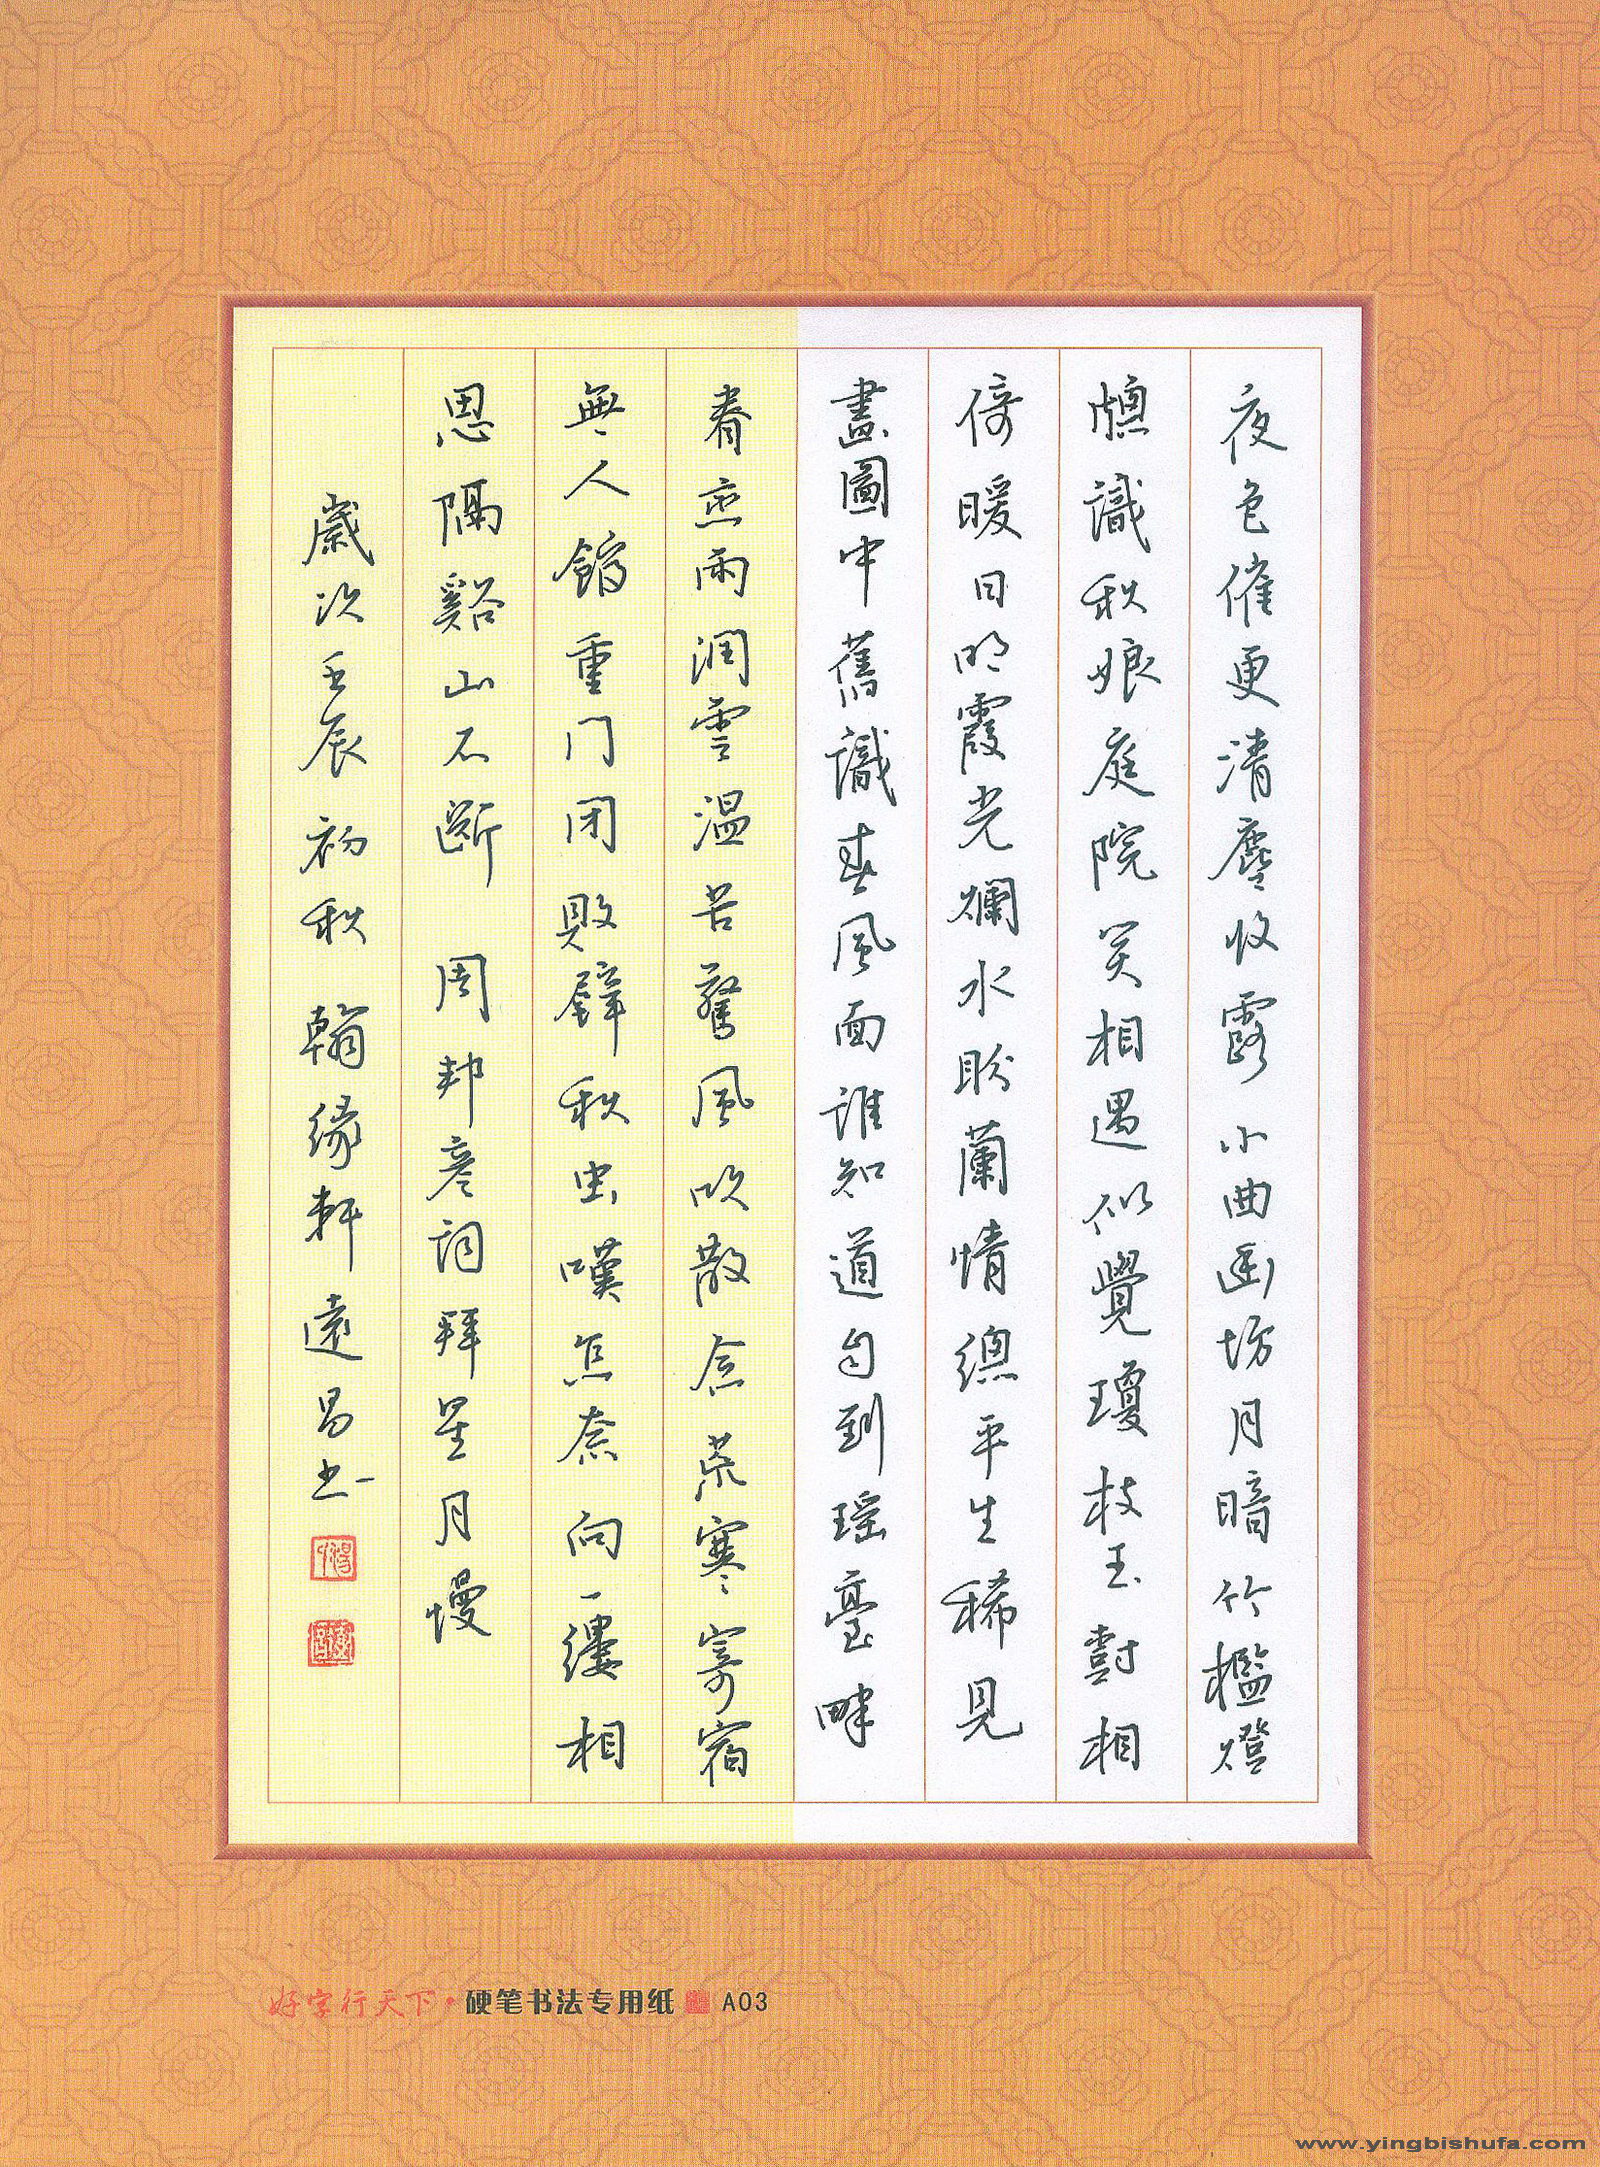 夜色催更清塵收露小曲幽坊月暗竹檻燈
牕識秋娘庭院笑相遇似覺瓊枝玉尌相
倚暖日明霞光爛水盼蘭情總平生稀見
畫圖中舊識春風面誰知道自到瑶臺畔
眷恋雨潤雲温苦驚風吹散念荒寒寄宿
無人館重门闭敗壁秋虫嘆怎奈向一縷相
思隔谿山不斷 周邦彦詞拜星月慢
歲次壬辰初秋 翰缘軒遠昌书
好字行天下·硬笔书法专用纸 A03
www.yingbishufa.com